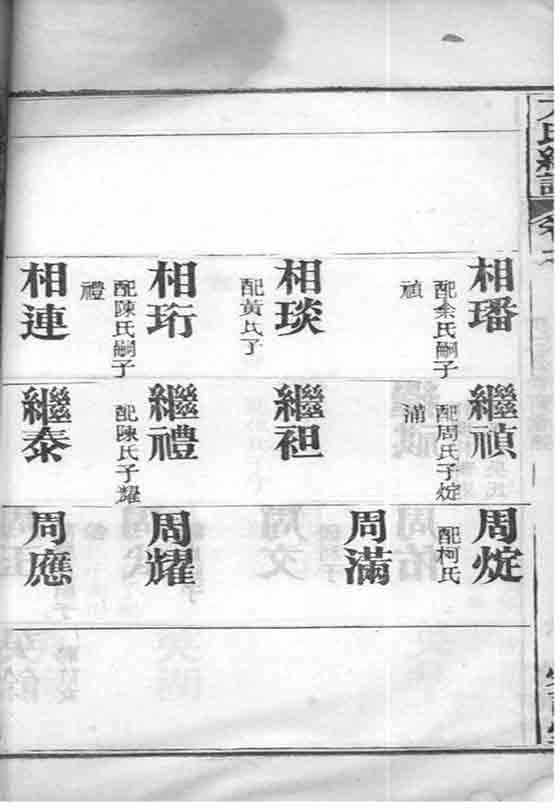 相璠
配余氏嗣子
禎
相琰
配黃氏子
相珩
配陳氏嗣子
禮
相連
繼禎
配周氏子烶
滿
繼袒
繼禮
配陳氏子耀
繼泰
周烶
配柯氏
周滿
周耀
周應